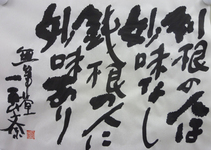 利根の人は
妙味なし
鈍根の人に
妙味あり
無車堂